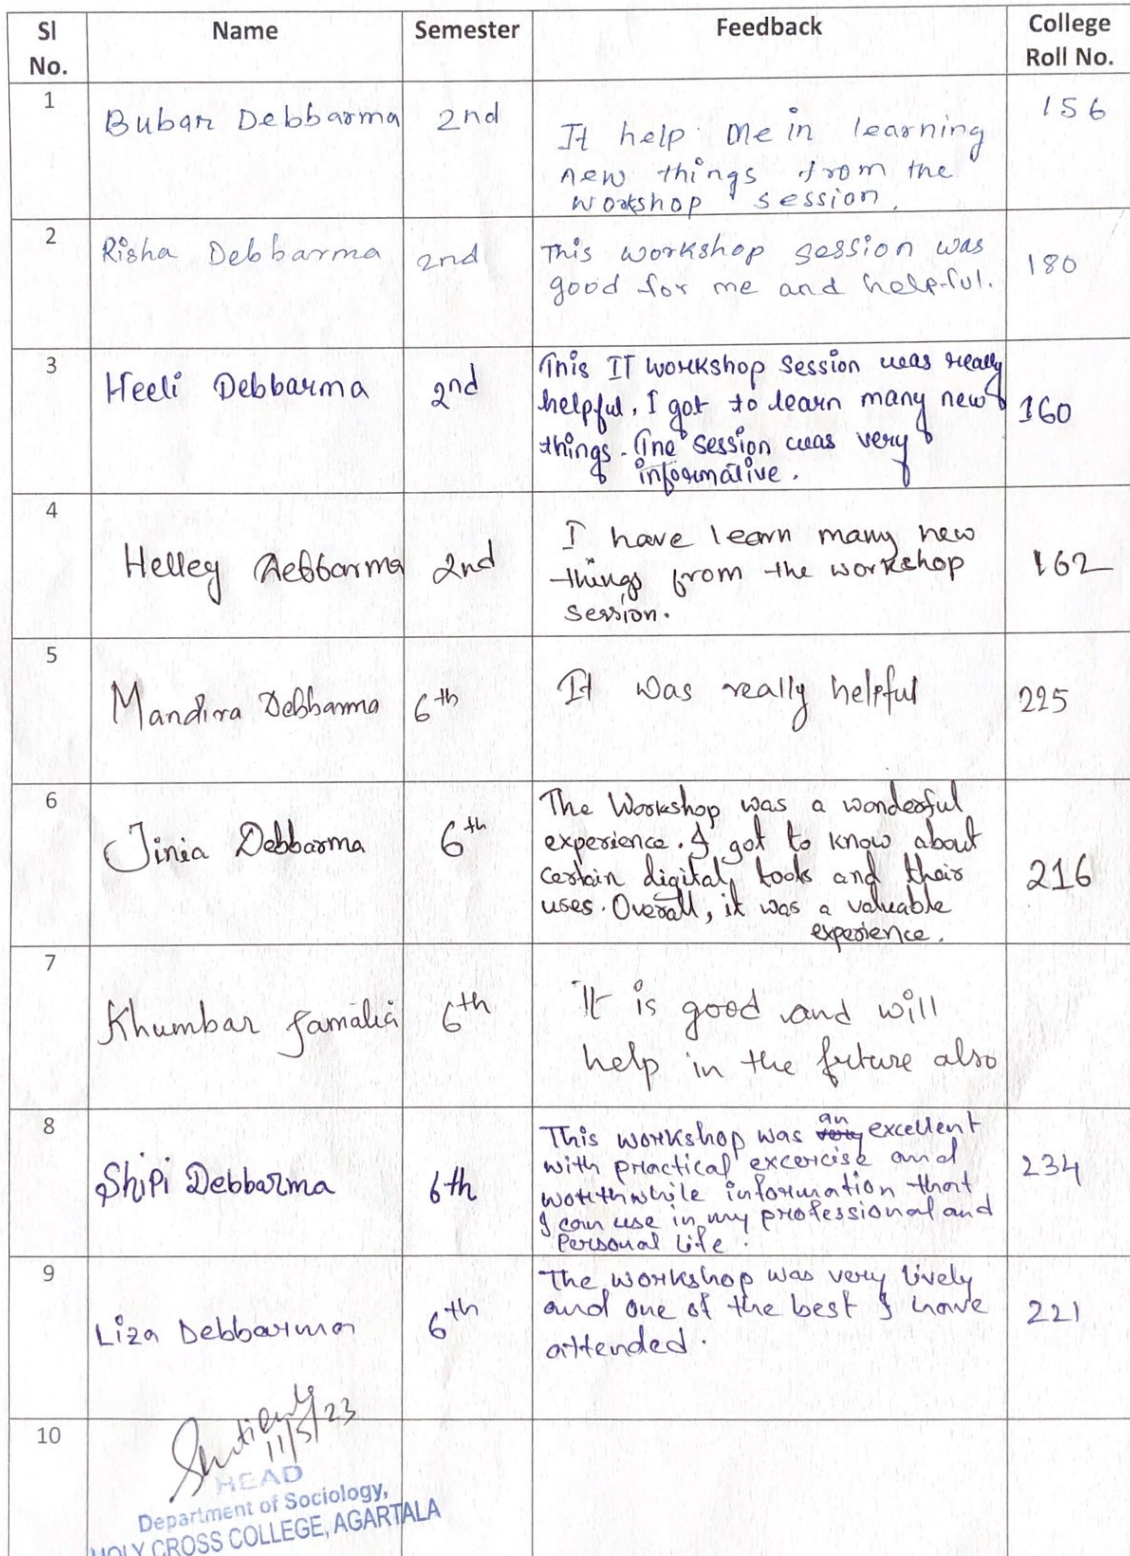 Sl No. Name Semester Feedback College Roll No.
1 Bubar Debbarma 2nd 156
It help me in learning
new things from the
workshop session.
2 Risha Debbarma 2nd This workshop session was 180
good for me and helpful.
3 Heeli Debbarma 2nd This IT workshop session was really 160
helpful. I got to learn many new
things. The session was very
informative.
4 Helley Debbarma 2nd I have learn many new 162
things from the workshop
session.
5 Mandira Debbarma 6th It was really helpful 225
6 Jinia Debbarma 6th The Workshop was a wonderful 216
experience. I got to know about
certain digital tools and their
uses. Overall, it was a valuable
experience.
7 Khumbar Jamatia 6th It is good and will
help in the future also
8 Shipi Debbarma 6th This workshop was an excellent 234
with practical excercise and
worthwhile information that
I can use in my professional and
Personal Life.
9 Liza Debbarma 6th The workshop was very lively 221
and one of the best I have
attended.
10
11/5/23
HEAD
Department of Sociology,
HOLY CROSS COLLEGE, AGARTALA